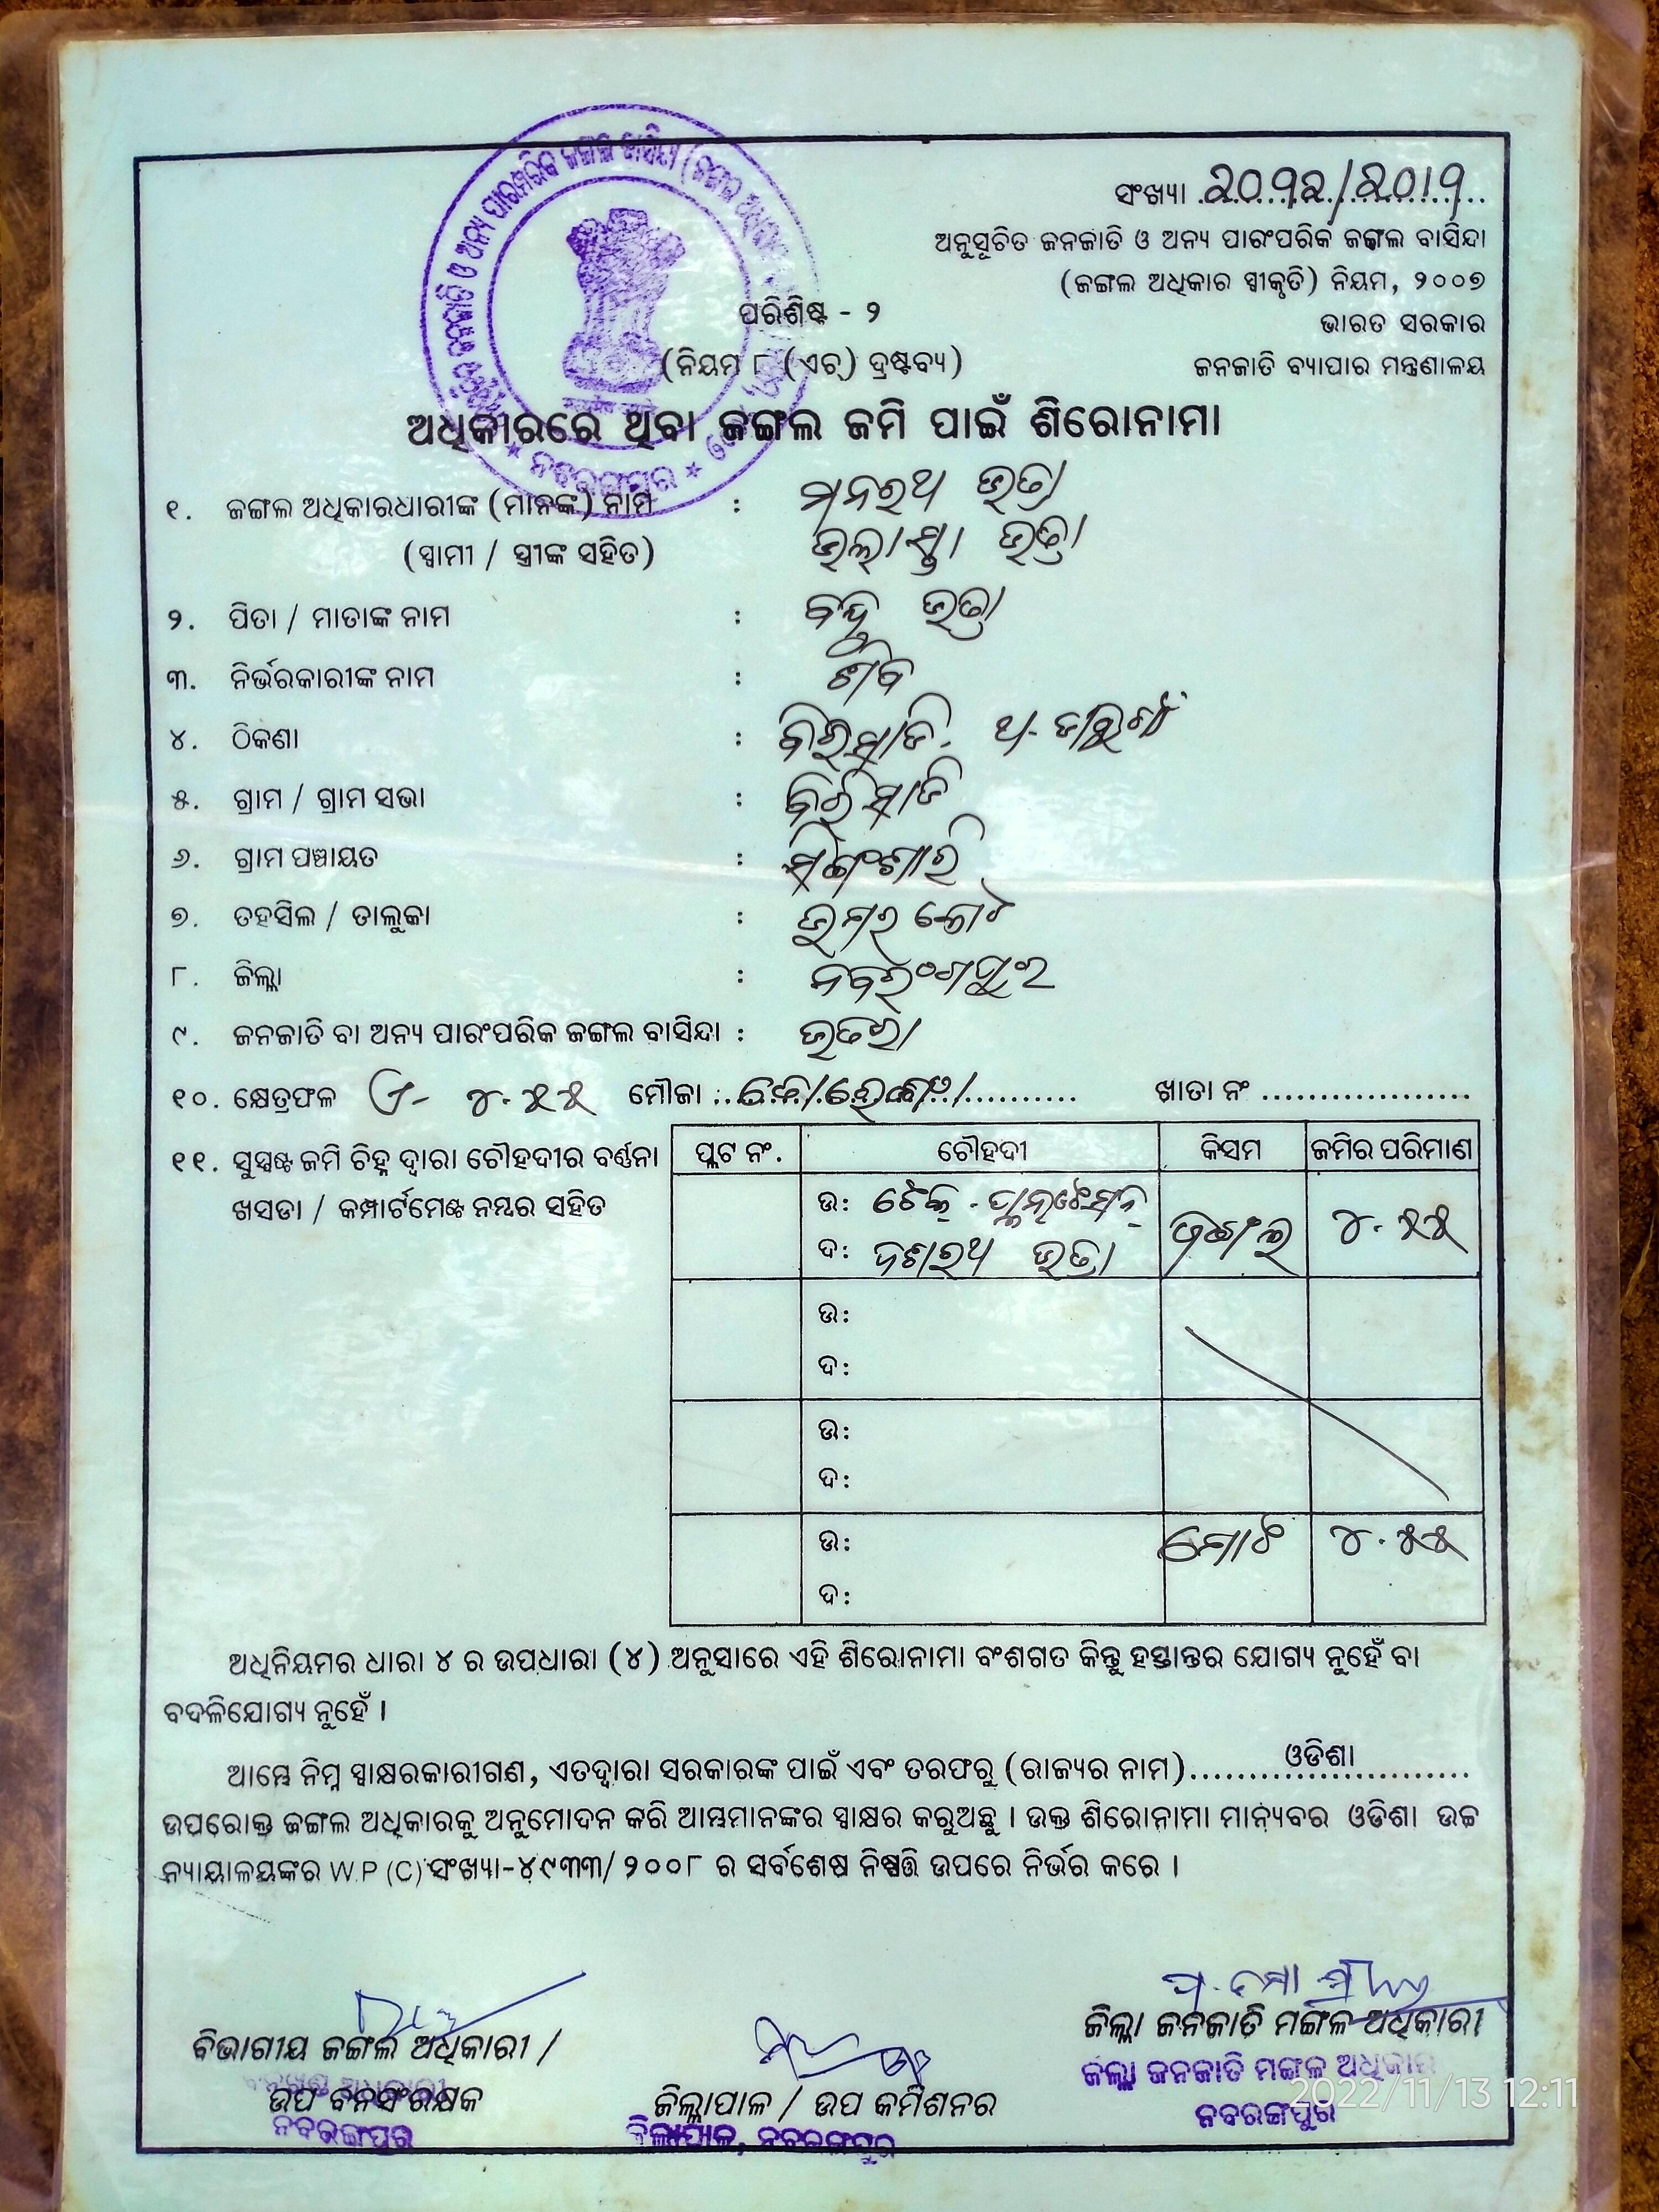 ସଂଖ୍ୟା
ଅନୁସୂଚିତ ଜନଜାତି ଓ ଅନ୍ୟ ପାରଂପରିକ ଜଙ୍ଗଲ ବାସିନ୍ଦା
(ଜଙ୍ଗଲ ଅଧିକାର ସ୍ୱୀକୃତି) ନିୟମ, ୨୦୦୭
ପରିଶିଷ୍ଟ - ୨
ଭାରତ ସରକାର
(ନିୟମ ୮ (ଏଚ୍) ଦ୍ରଷ୍ଟବ୍ୟ)
ଜନଜାତି ବ୍ୟାପାର ମନ୍ତ୍ରଣାଳୟ
ଅଧିକାରରେ ଥିବା ଜଙ୍ଗଲ ଜମି ପାଇଁ ଶିରୋନାମା
୧. ଜଙ୍ଗଲ ଅଧିକାରଧାରୀଙ୍କ (ମାନଙ୍କ) ନାମ : ମନରଥ ଭତ୍ରା
(ସ୍ୱାମୀ / ସ୍ତ୍ରୀଙ୍କ ସହିତ) ଭତ୍ରା
୨. ପିତା / ମାତାଙ୍କ ନାମ : ବନ୍ଦୁ ଭତ୍ରା
୩. ନିର୍ଭରକାରୀଙ୍କ ନାମ : ଶିବ
୪. ଠିକଣା :
୫. ଗ୍ରାମ / ଗ୍ରାମ ସଭା :
୬. ଗ୍ରାମ ପଞ୍ଚାୟତ :
୭. ତହସିଲ / ତାଲୁକା : ଉମରକୋଟ
୮. ଜିଲ୍ଲା : ନବରଂଗପୁର
୯. ଜନଜାତି ବା ଅନ୍ୟ ପାରଂପରିକ ଜଙ୍ଗଲ ବାସିନ୍ଦା : ଭତରା
୧୦. କ୍ଷେତ୍ରଫଳ ଏ- ୪.୫୫ ମୌଜା : ଖାତା ନଂ
୧୧. ସୁସ୍ପଷ୍ଟ ଜମି ଚିହ୍ନ ଦ୍ୱାରା ଚୌହଦୀର ବର୍ଣ୍ଣନା
ଖସଡା / କମ୍ପାର୍ଟମେଣ୍ଟ ନମ୍ବର ସହିତ
ପ୍ଲଟ ନଂ. ଚୌହଦୀ କିସମ ଜମିର ପରିମାଣ
ଉ: ୪.୫୫
ଦ: ଦଶରଥ ଭତ୍ରା ଜଙ୍ଗଲ
ଉ:
ଦ:
ଉ:
ଦ:
ଉ: ମୋଟ ୪.୫୫
ଦ:
ଅଧିନିୟମର ଧାରା ୪ ର ଉପଧାରା (୪) ଅନୁସାରେ ଏହି ଶିରୋନାମା ବଂଶଗତ କିନ୍ତୁ ହସ୍ତାନ୍ତର ଯୋଗ୍ୟ ନୁହେଁ ବା
ବଦଳିଯୋଗ୍ୟ ନୁହେଁ ।
ଆମ୍ଭେ ନିମ୍ନ ସ୍ୱାକ୍ଷରକାରୀଗଣ, ଏତଦ୍ଦ୍ୱାରା ସରକାରଙ୍କ ପାଇଁ ଏବଂ ତରଫରୁ (ରାଜ୍ୟର ନାମ) ଓଡିଶା
ଉପରୋକ୍ତ ଜଙ୍ଗଲ ଅଧିକାରକୁ ଅନୁମୋଦନ କରି ଆମ୍ଭମାନଙ୍କର ସ୍ୱାକ୍ଷର କରୁଅଛୁ । ଉକ୍ତ ଶିରୋନାମା ମାନ୍ୟବର ଓଡିଶା ଉଚ୍ଚ
ନ୍ୟାୟାଳୟଙ୍କର W.P (C) ସଂଖ୍ୟା-୪୯୩୩/୨୦୦୮ ର ସର୍ବଶେଷ ନିଷ୍ପତ୍ତି ଉପରେ ନିର୍ଭର କରେ ।
ଜିଲ୍ଲା ଜନଜାତି ମଙ୍ଗଳ ଅଧିକାରୀ
ବିଭାଗୀୟ ଜଙ୍ଗଲ ଅଧିକାରୀ /
ଜିଲ୍ଲା ଜନଜାତି ମଙ୍ଗଳ ଅଧିକାରୀ
ଉପ ବନସଂରକ୍ଷକ
ଜିଲ୍ଲାପାଳ / ଉପ କମିଶନର
ନବରଙ୍ଗପୁର
ନବରଙ୍ଗପୁର
ଜିଲ୍ଲାପାଳ, ନବରଙ୍ଗପୁର
2022/11/13 12:11